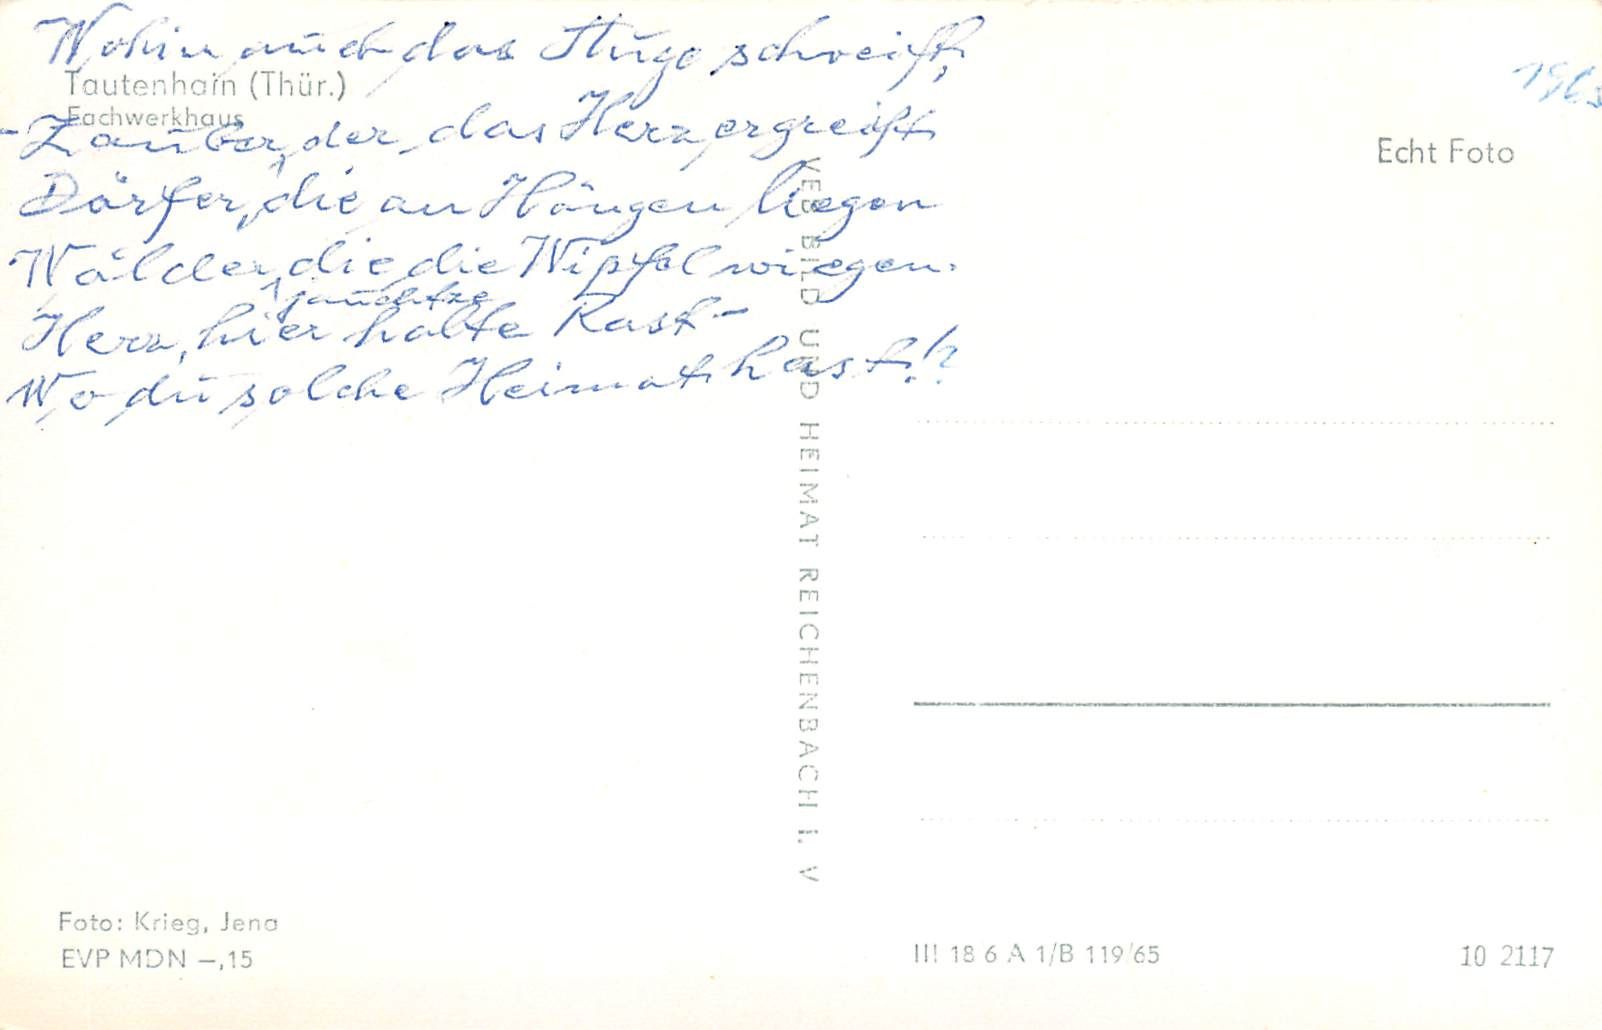 Wohin auch das Auge schweift,
Tautenhain (Thür.)
Fachwerkhaus
- Zauber, der das Herz ergreift
Dörfer, die an Hängen liegen
Wälder, die die Wipfel wiegen.
jauchtze
Herz, hier halte Rast -
Wo du solche Heimat hast!?
1965
Echt Foto
VEB BILD UND HEIMAT REICHENBACH I. V
Foto: Krieg, Jena
EVP MDN –,15
III 18 6 A 1/B 119/65
10 2117